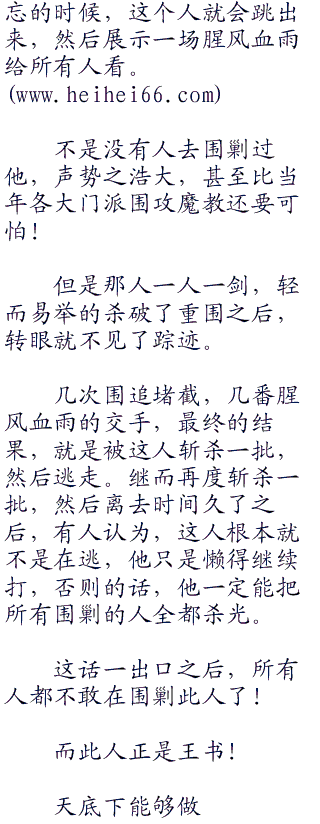 忘的时候，这个人就会跳出
来，然后展示一场腥风血雨
给所有人看。
(www.heihei66.com)
不是没有人去围剿过
他，声势之浩大，甚至比当
年各大门派围攻魔教还要可
怕！
但是那人一人一剑，轻
而易举的杀破了重围之后，
转眼就不见了踪迹。
几次围追堵截，几番腥
风血雨的交手，最终的结
果，就是被这人斩杀一批，
然后逃走。继而再度斩杀一
批，然后离去时间久了之
后，有人认为，这人根本就
不是在逃，他只是懒得继续
打，否则的话，他一定能把
所有围剿的人全都杀光。
这话一出口之后，所有
人都不敢在围剿此人了！
而此人正是王书！
天底下能够做